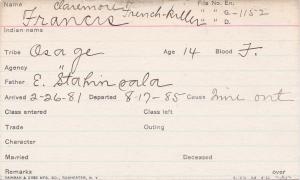 Claremore
Name Francis French-killer File No. En;
" " G-1152
" " D.
Indian name
Tribe Osage Age 14 Blood F.
Agency "
Father E. Stahin oala
Arrived 2-26-81 Departed 8-17-85 Cause Time out
Class entered Class left
Trade Outing
Character
Married Deceased
Remarks over